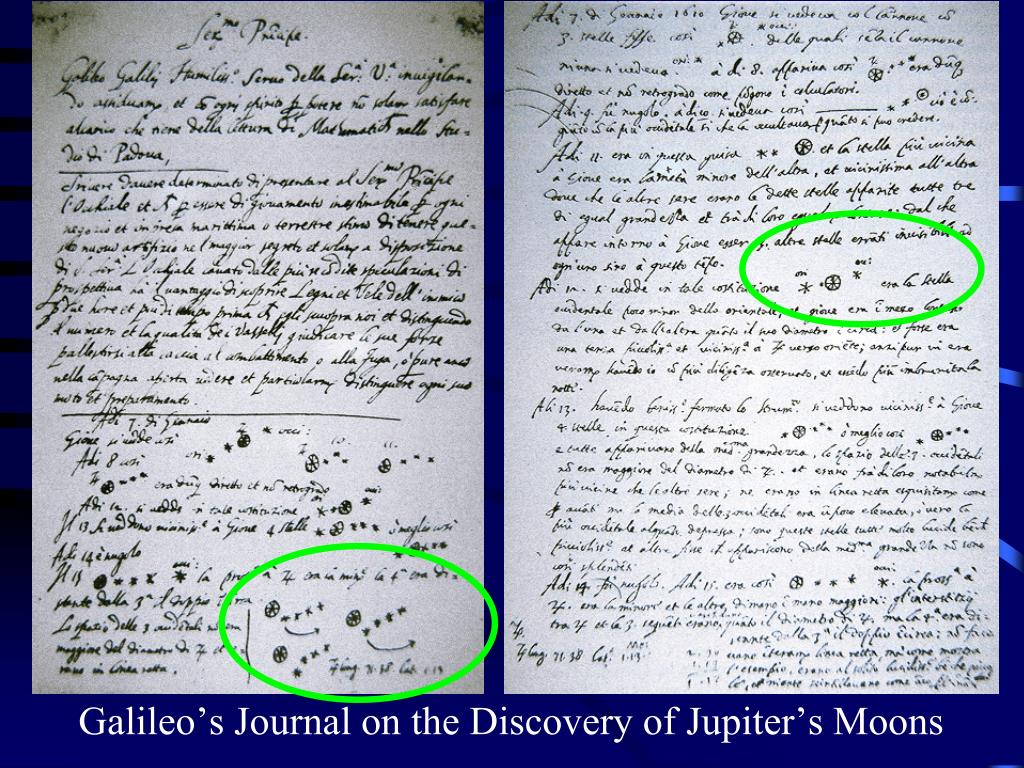 Ser.mo Principe.
Galileo Galilei Humiliss.o Servo della Ser.a V.a invigilan-
do assiduam.te et co ogni spirito p potere no solam satisfare
alcarico che tiene della lettura di Mathematich nello Stu-
dio di Padova,
Scrivere d'havere determinato di presentare al Ser.mo Principe
l'Occhiale et p essere di giovamento inestimabile p ogni
negozio et impresa marittima o terrestre stimo di tenere que-
sto nuovo artifizio nel maggior segreto et solam a disposizione
di S. Ser.a L'Occhiale cavato dalle più recodite speculazioni di
prospettiva ha il vantaggio di scoprire Legni et Vele dell'inimico
p due hore et più di tempo prima ch'egli scuopra noi et distinguendo
il numero et la qualità de i Vasselli giudicare le sue forze
pallestirsi alla caccia al combattimento o alla fuga, o pure anco
nella capagna aperta vedere et particolarm distinguere ogni suo
moto et preparamento.
Adi 7. di Gennaio
Giove si vedde così ori: occi:
Adi 8 così
era dūq diretto et nō retrogrado
Adi 12. si vedde in tale costituzione
Il 13 si veddono vicinis.e à Giove 4 stelle ò meglio così
Adi 14 è nugolo
Il 15 la pross.a à ♃ era la min.e la 4.a era di-
stante dalla 3.a il doppio
Lo spazio delle 3 occidentali nō era
maggiore del diametro di ♃ et e-
rano in linea retta.
♃ long. 71.38 Lat. 1.13
Adi 7. di Gennaio 1610 Giove si vedeva col Cannone cō
3. stelle fisse così delle quali seza il cannone
niuna si vedeva. à dì 8. appariva così era dūq
diretto et nō retrogrado come pōgono i calculatori.
Adi 9. fù nugolo. à dì 10. si vedeva così
cioè cō-
giūto cō la più occidētale sì che la occultava p quāto si può credere.
Adi 11. era in questa guisa et la stella più vicina
à Giove era la metà minore dell'altra, et vicinissima all'altra
dove che le altre sere erano le dette stelle apparite tutte tre
di egual grandezza et trà di loro egualm dal che
appare intorno à Giove esser altre stelle errāti invisibili ad
ogn'uno sino à questo tēpo.
Adi 12. si vedde in tale costituzione era la stella
occidentale poco minor della orientale, et giove era ī mezo
da l'una et dall'altra quāto il suo diametro ī circa: et forse era
una terza piccoliss.a et viciniss.a à ♃ verso oriēte; anzi pur vi era
veram havēdo io cō più diligēza osservato, et essēdo più imbrunita la
notte.
Adi 13. havēdo beniss.o fermato lo strum.to si veddono viciniss.e à Giove
4 stelle in questa costituzione ò meglio così
e tutte apparivano della med.ma grandezza, lo spazio delle 3. occidētali
nō era maggiore del diametro di ♃. et erano frà di loro notabilm
più vicine che le altre sere; ne erano in linea retta esquisitamte come
p avāti ma la media delle 3 occidētali era ū poco elevata, overo la
più occidētale alquāto depressa; sono queste stelle tutte molto lucide bēchè
piccoliss.e et altre fisse ch'appariscono della med.ma grandezza nō sono
così splendēti.
Adi 14 fù nugolo. Adi 15. era così la pross.a à
♃. era la minore et le altre di mano ī mano maggiori: gl'interstitii
tra ♃ et le 3. seguēti erano, quāto il diametro di ♃. ma la 4. era di-
stante dalla 3.a il doppio circa: nō face
vano interam linea retta ma come mostra
l'esempio, erano al solito lucidiss.e bēche picco
le, et niente scintillavano come
♃ long. 71.38 Lat.e 1.13
Galileo’s Journal on the Discovery of Jupiter’s Moons